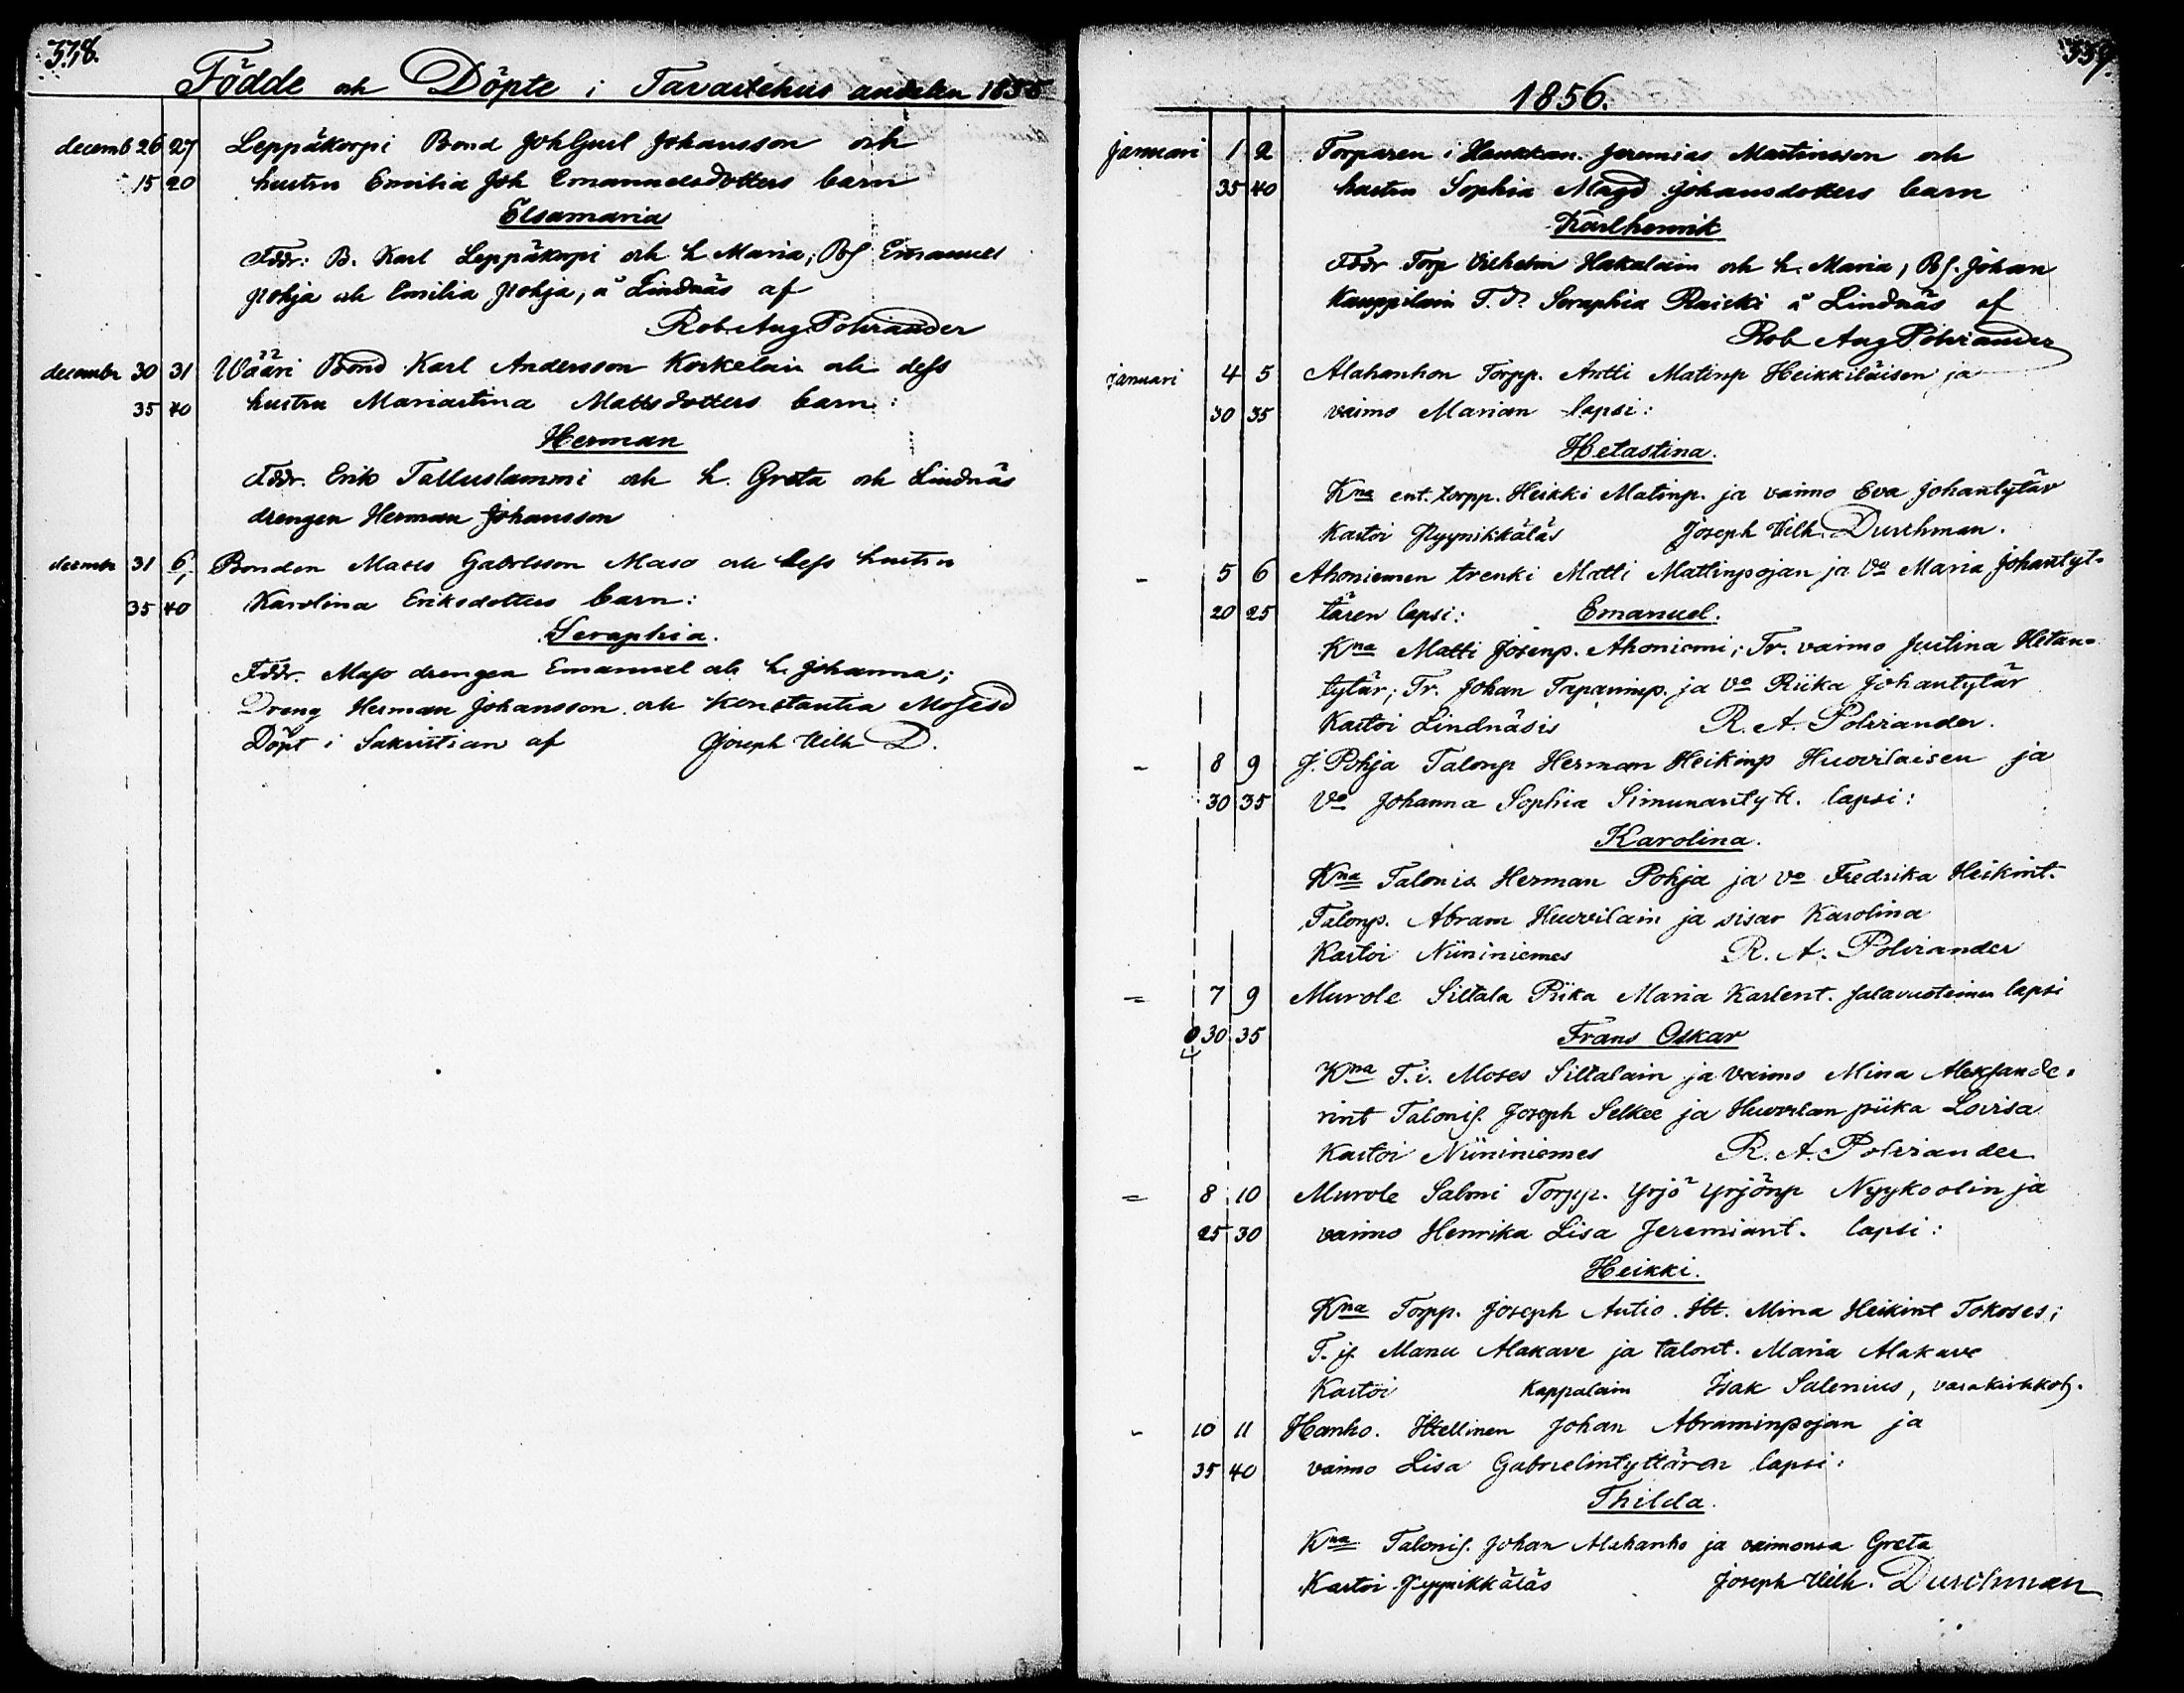 338.
Födde och Döpte i Tavastehus andelen 1855
decemb 26 27 Leppäkorpi Bond Joh Gust Johansson och
15 20 hustru Emilia Joh Emanuelsdotters barn
Elsamaria
Fddr: B. Karl Leppäkorpi och h Maria; Bs Emanuel
Pohja och Emilia Pohja, å Lindnäs af
Rob. Aug. Polviander
decembr 30 31 Wääri Bond Karl Andersson Korkelain och dess
35 40 hustru Mariastina Mattsdotters barn:
Herman
Fddr. Erik Talluslammi och h. Greta och Lindnäs
drengen Herman Johansson
decembr 31 6/1 Bonden Matts Gabrlsson Maso och dess hustru
35 40 Karolina Eriksdotters barn:
Seraphia.
Fddr. Maso drengen Emanuel och h. Johanna;
Dreng Herman Johansson och Konstantia Mosesd
Döpt i Sakristian af Joseph Wilh D.
339.
1856.
januari 1 2 Torparen i Haukkan. Jeremias Martinsson och
35 40 hustru Sophia Magd Johansdotters barn
Karlhenrik
Fddr Torp Vilhelm Hakalain och h. Maria, Bs. Johan
Kauppilain T. D. Seraphia Raiski å Lindnäs af
Rob Aug Polviander
januari 4 5 Alahanhon Torpp. Antti Matinp Heikkiläisen ja
30 35 vaimo Marian lapsi:
Hetastina.
Kna ent. torpp. Heikki Matinp. ja vaimo Eva Johantytär
Kastoi Pyynikkäläs Joseph Wilh. Durchman.
- 5 6 Ahoniemen trenki Matti Mattinpojan ja Vo Maria Johantyt-
20 25 tären lapsi: Emanuel.
Kna Matti Josenp. Ahoniemi; Tr. vaimo Justina Hetan-
tytär; Tr. Johan Tapaninp. ja Vo Riika Johantytär
Kastoi Lindnäsis R. A. Polviander.
- 8 9 J. Pohja Talonp Herman Heikinp Huovilaisen ja
30 35 Vo Johanna Sophia Simunantytt. lapsi:
Karolina.
Kna Talonis. Herman Pohja ja vo Fredrika Heikint.
Talonp. Abram Huovilain ja sisar Karolina
Kastoi Niininiemes R. A. Polviander
= 7 9 Murole Siltala Piika Maria Karlent. Salavuoteinen lapsi
30 35 Frans Oskar
Kna T. i. Moses Siltalain ja vaimo Mina Aleksande-
rint Talonis. Joseph Selkee ja Huovilan piika Lovisa
Kastoi Niininiemes R. A. Polviander
= 8 10 Murole Salmi Torpp. Yrjö Yrjönp Nyykoolin ja
25 30 vaimo Henrika Lisa Jeremiant. lapsi:
Heikki.
Kna Torpp. Joseph Autio. Itt. Mina Heikint Tokoses;
T. is Manu Alakave ja talont. Maria Alakave
Kastoi Kappalain Isak Salenius, varakirkkoh.
- 10 11 Hanho. Itellinen Johan Abraminpojan ja
35 40 vaimo Lisa Gabrielintyttären lapsi:
Thilda.
Kna Talonis. Johan Alahanho ja vaimonsa Greta
Kastoi Pyynikkäläs Joseph Wilh. Durchman